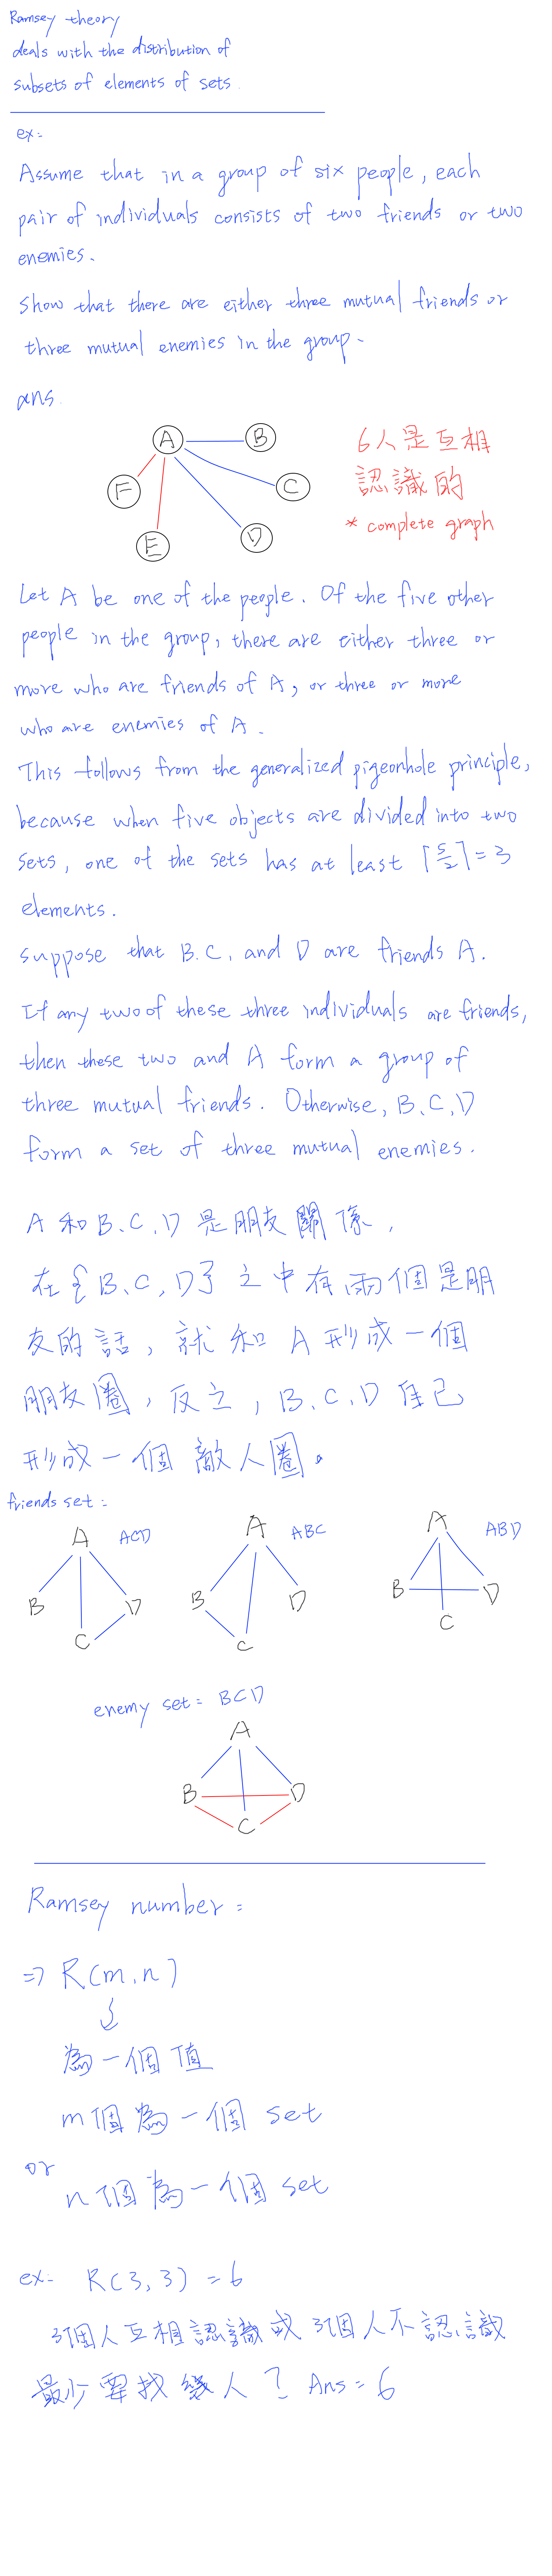 Ramsey theory
deals with the distribution of
subsets of elements of sets.
ex:
Assume that in a group of six people, each
pair of individuals consists of two friends or two
enemies.
Show that there are either three mutual friends or
three mutual enemies in the group.
ans.
A
B
C
D
E
F
6人是互相
認識的
* complete graph
Let A be one of the people. Of the five other
people in the group, there are either three or
more who are friends of A, or three or more
who are enemies of A.
This follows from the generalized pigeonhole principle,
because when five objects are divided into two
sets, one of the sets has at least ⌈5/2⌉ = 3
elements.
suppose that B.C, and D are friends A.
If any two of these three individuals are friends,
then these two and A form a group of
three mutual friends. Otherwise, B, C, D
form a set of three mutual enemies.
A 和 B、C、D 是朋友關係,
在{B、C、D}之中有兩個是朋
友的話, 就和 A 形成一個
朋友圈, 反之, B、C、D 自己
形成一個 敵人圈。
friends set:
A ACD
B C D
A ABC
B C D
A ABD
B C D
enemy set: BCD
A
B C D
Ramsey number:
=> R(m,n)
為一個值
m個為一個 set
or
n個為一個 set
ex: R(3,3) = 6
3個人互相認識或3個人不認識
最少要找幾人? Ans: 6